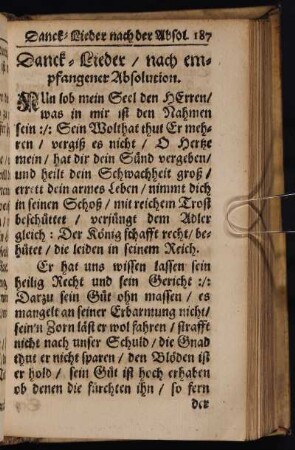 Danck-Lieder nach der Absol. 187
Danck-Lieder / nach em-
pfangener Absolution.
NUn lob mein Seel den HErren/
was in mir ist den Nahmen
sein :/: Sein Wolthat thut Er meh-
ren / vergiß es nicht / O Hertze
mein / hat dir dein Sünd vergeben/
und heilt dein Schwachheit groß /
errett dein armes Leben / nimmt dich
in seinen Schoß / mit reichem Trost
beschüttet / verjüngt dem Adler
gleich : Der König schafft recht / be-
hütet / die leiden in seinem Reich.
Er hat uns wissen lassen sein
heilig Recht und sein Gericht :/:
Darzu sein Güt ohn massen / es
mangelt an seiner Erbarmung nicht/
sein'n Zorn läst er wol fahren / strafft
nicht nach unser Schuld / die Gnad
thut er nicht sparen / den Blöden ist
er hold / sein Güt ist hoch erhaben
ob denen die fürchten ihn / so fern
der